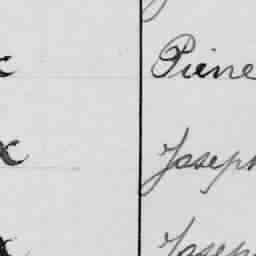 x Pierre
x Joseph
x Joseph